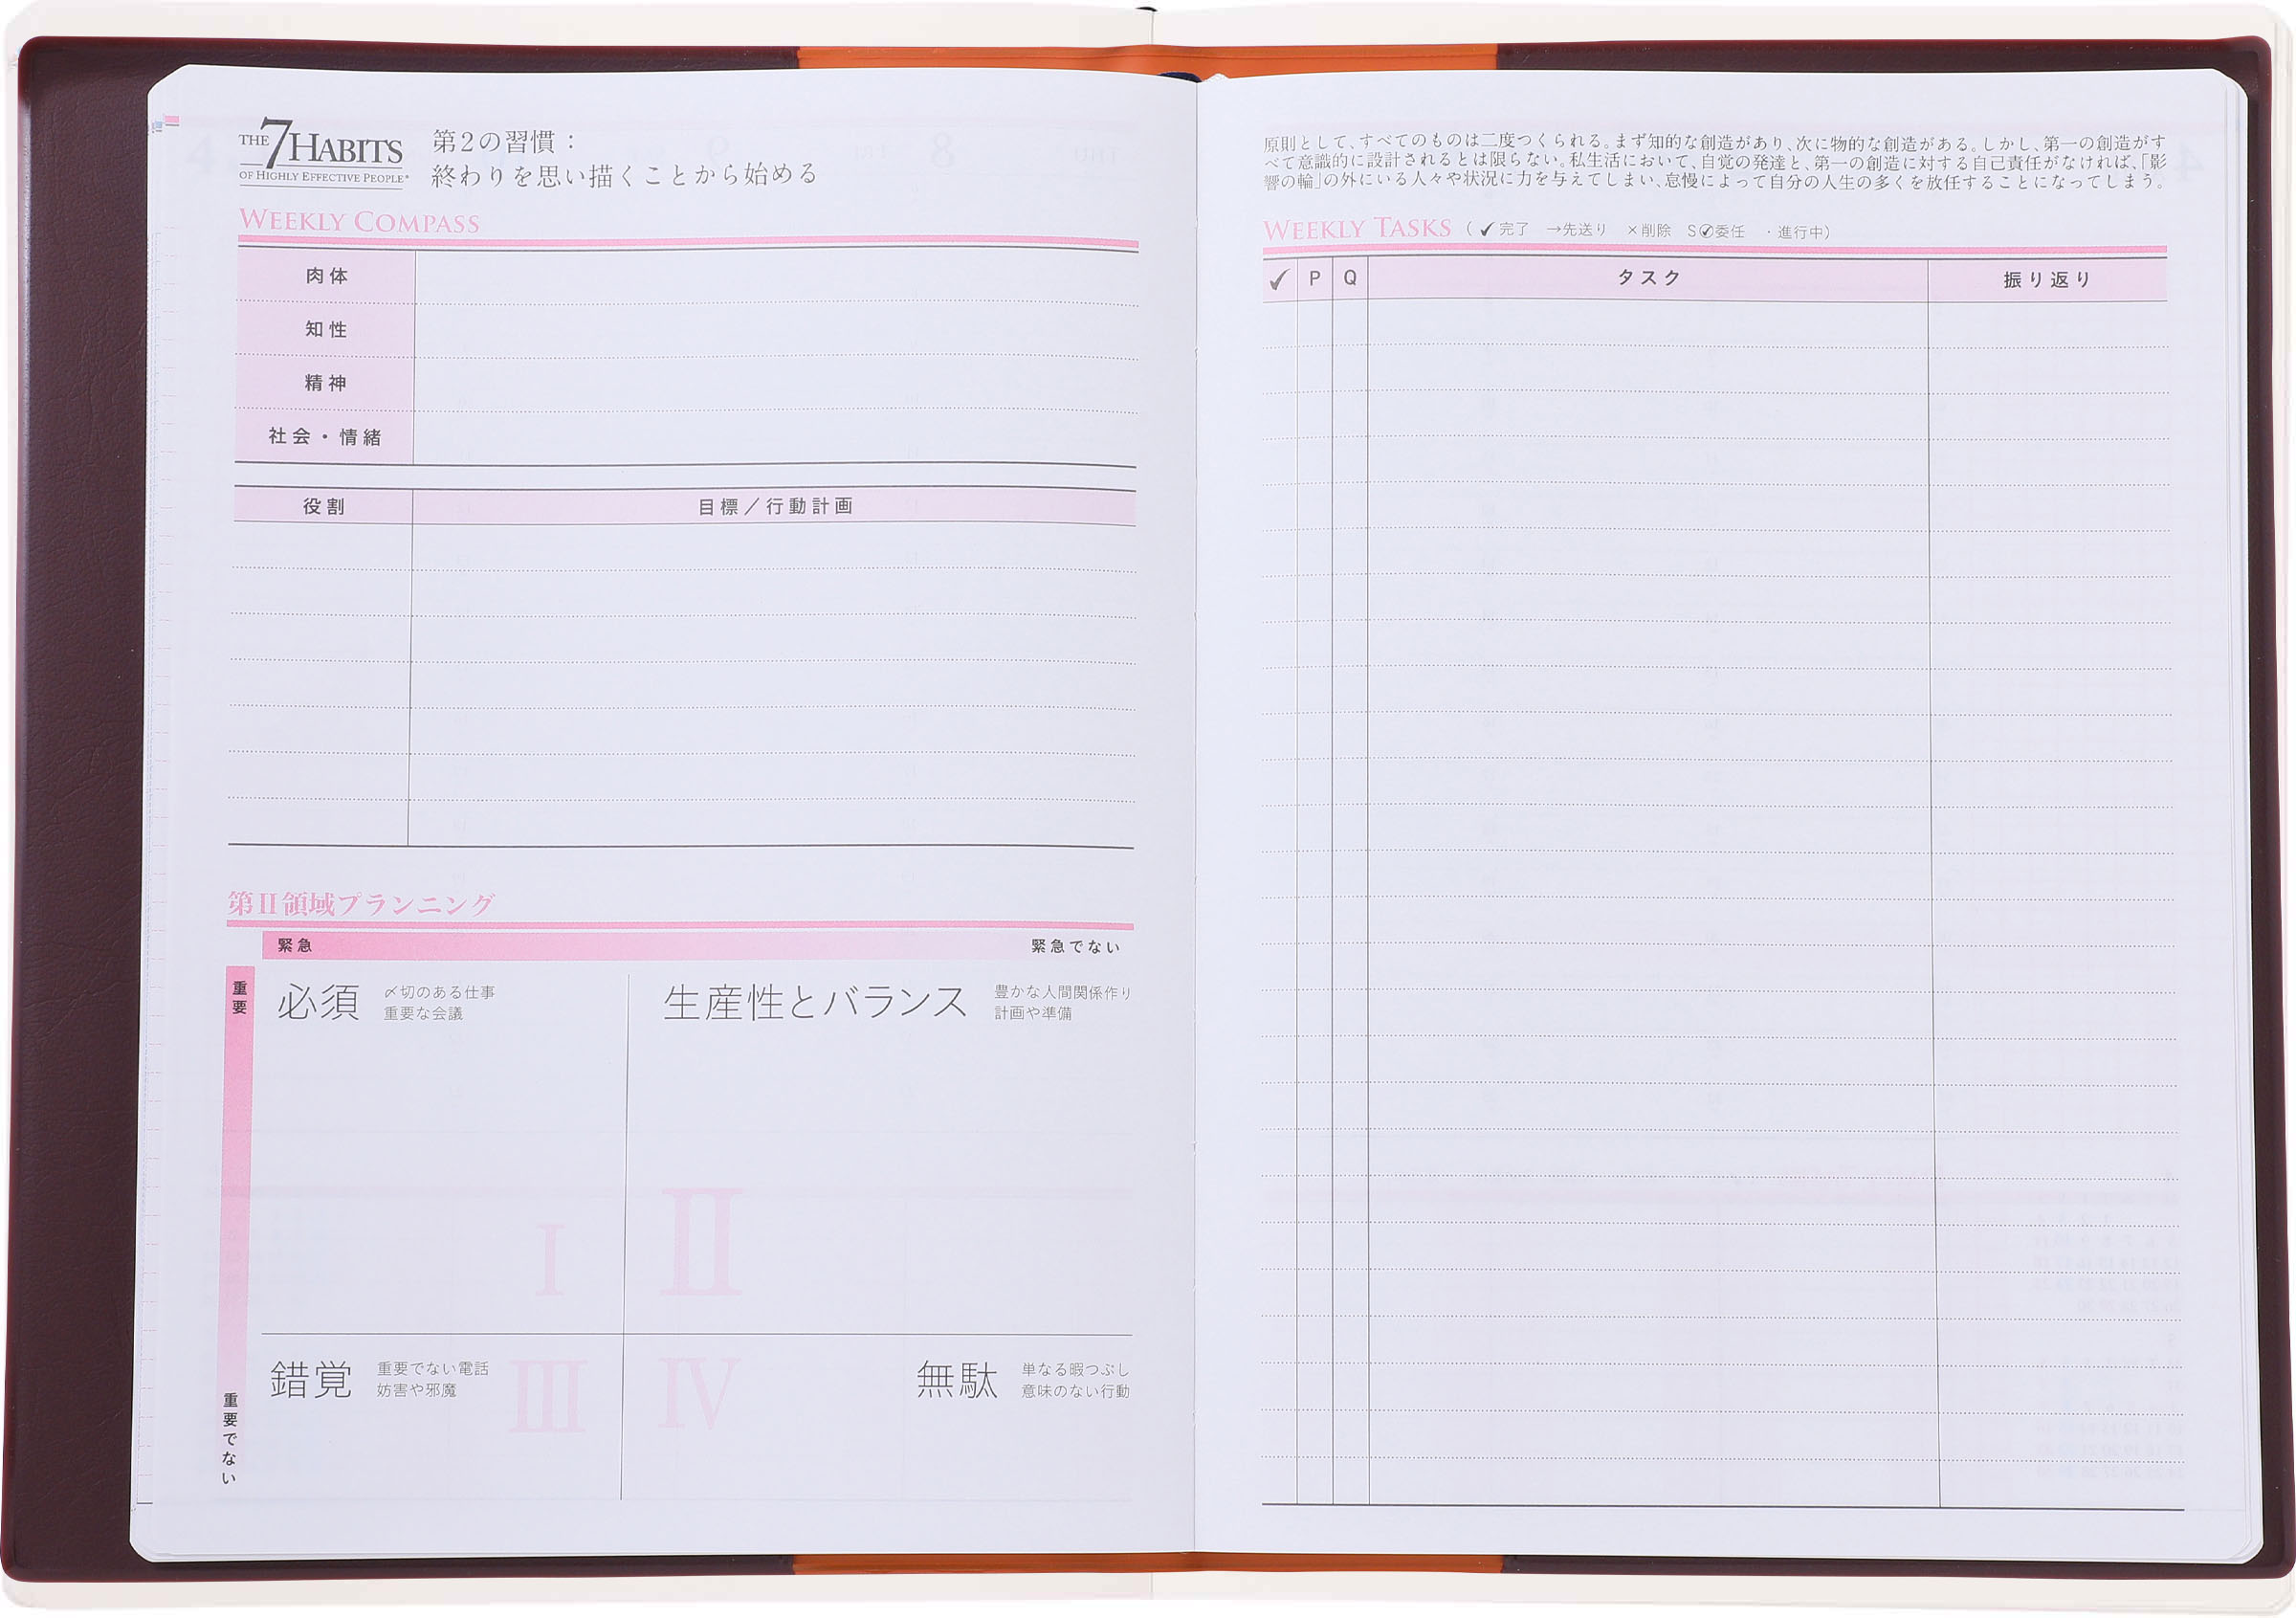 THE 7 HABITS
OF HIGHLY EFFECTIVE PEOPLE®
第2の習慣：
終わりを思い描くことから始める
WEEKLY COMPASS
肉体
知性
精神
社会・情緒
役割 目標／行動計画
第Ⅱ領域プランニング
緊急 緊急でない
重要
必須 〆切のある仕事
重要な会議
生産性とバランス 豊かな人間関係作り
計画や準備
Ⅰ Ⅱ
錯覚 重要でない電話
妨害や邪魔
Ⅲ Ⅳ
無駄 単なる暇つぶし
意味のない行動
重要でない
原則として、すべてのものは二度つくられる。まず知的な創造があり、次に物的な創造がある。しかし、第一の創造がす
べて意識的に設計されるとは限らない。私生活において、自覚の発達と、第一の創造に対する自己責任がなければ、「影
響の輪」の外にいる人々や状況に力を与えてしまい、怠慢によって自分の人生の多くを放任することになってしまう。
WEEKLY TASKS （ ✓完了 →先送り ×削除 S✓委任 ・進行中）
✓ P Q タスク 振り返り